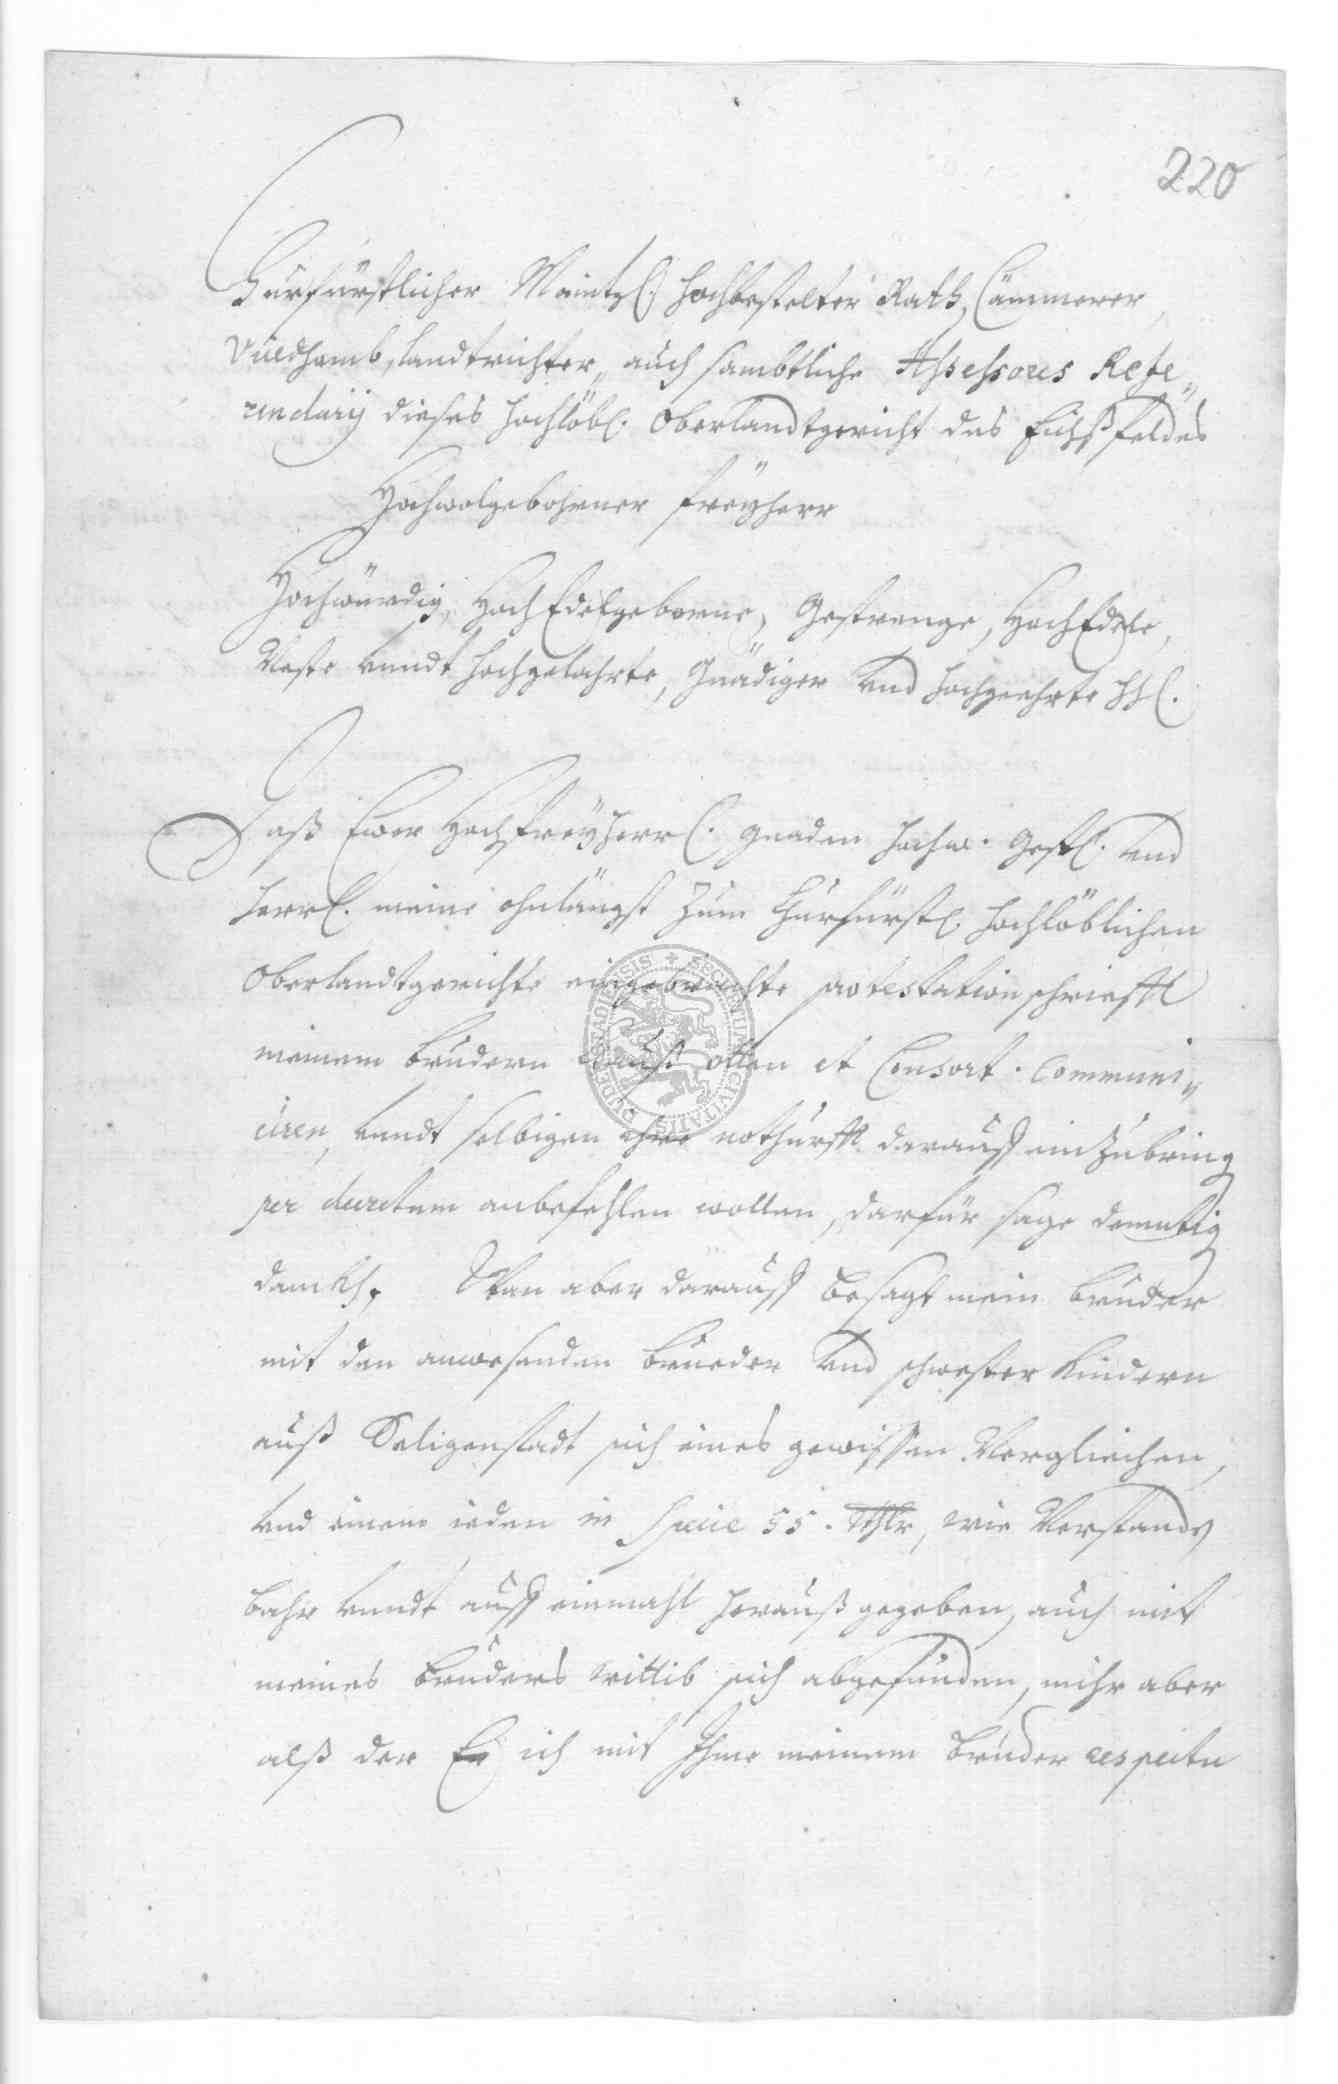 220
Churfürstlicher Maintzl. hochbestelter Rath, Cämmerer,
Viiedhomb, Landtrichter, auch sambtliche Assessores Refe„
rendarij dieses hochlöbl. Oberlandtgericht des Eichßfeldes
Hochwolgebohrner freyherr
Hochwürdig, HochEdelgeborne, Gestrenge, HochEdele,
Veste vundt hochgelahrte, Gnädiger vnd hochgeehrte HH.
Daß Ewer Hochfreyherrl. gnaden hochw. Gestl. vnd
Herrl. meine ohnlängst zum Churfürstl. hochlöblichen
Oberlandtgerichte eingebrachte protestation schriefftl
meinem brudern otten et Consort. communi„
ciren, vundt selbigen ihre nothurfft darauff einzubring
per decretum anbefehlen wollen, darfür sage demutig
danckh. Wan aber darauff besagt mein bruder
mit den anwesenden brueder vnd schwester kindern
auß Seligenstadt sich eines gewissen Vergliechen,
vnd einem ieden in specie 55. Rthlr, wie Verstandt,
bahr vundt auff einmahl herauß gegeben, auch mit
meines bruders wittib sich abgefunden, mihr aber
alß der ich mit Ihme meinem bruder respectu
SECUNDUM CIVITATIS DUDERSTADIENSIS